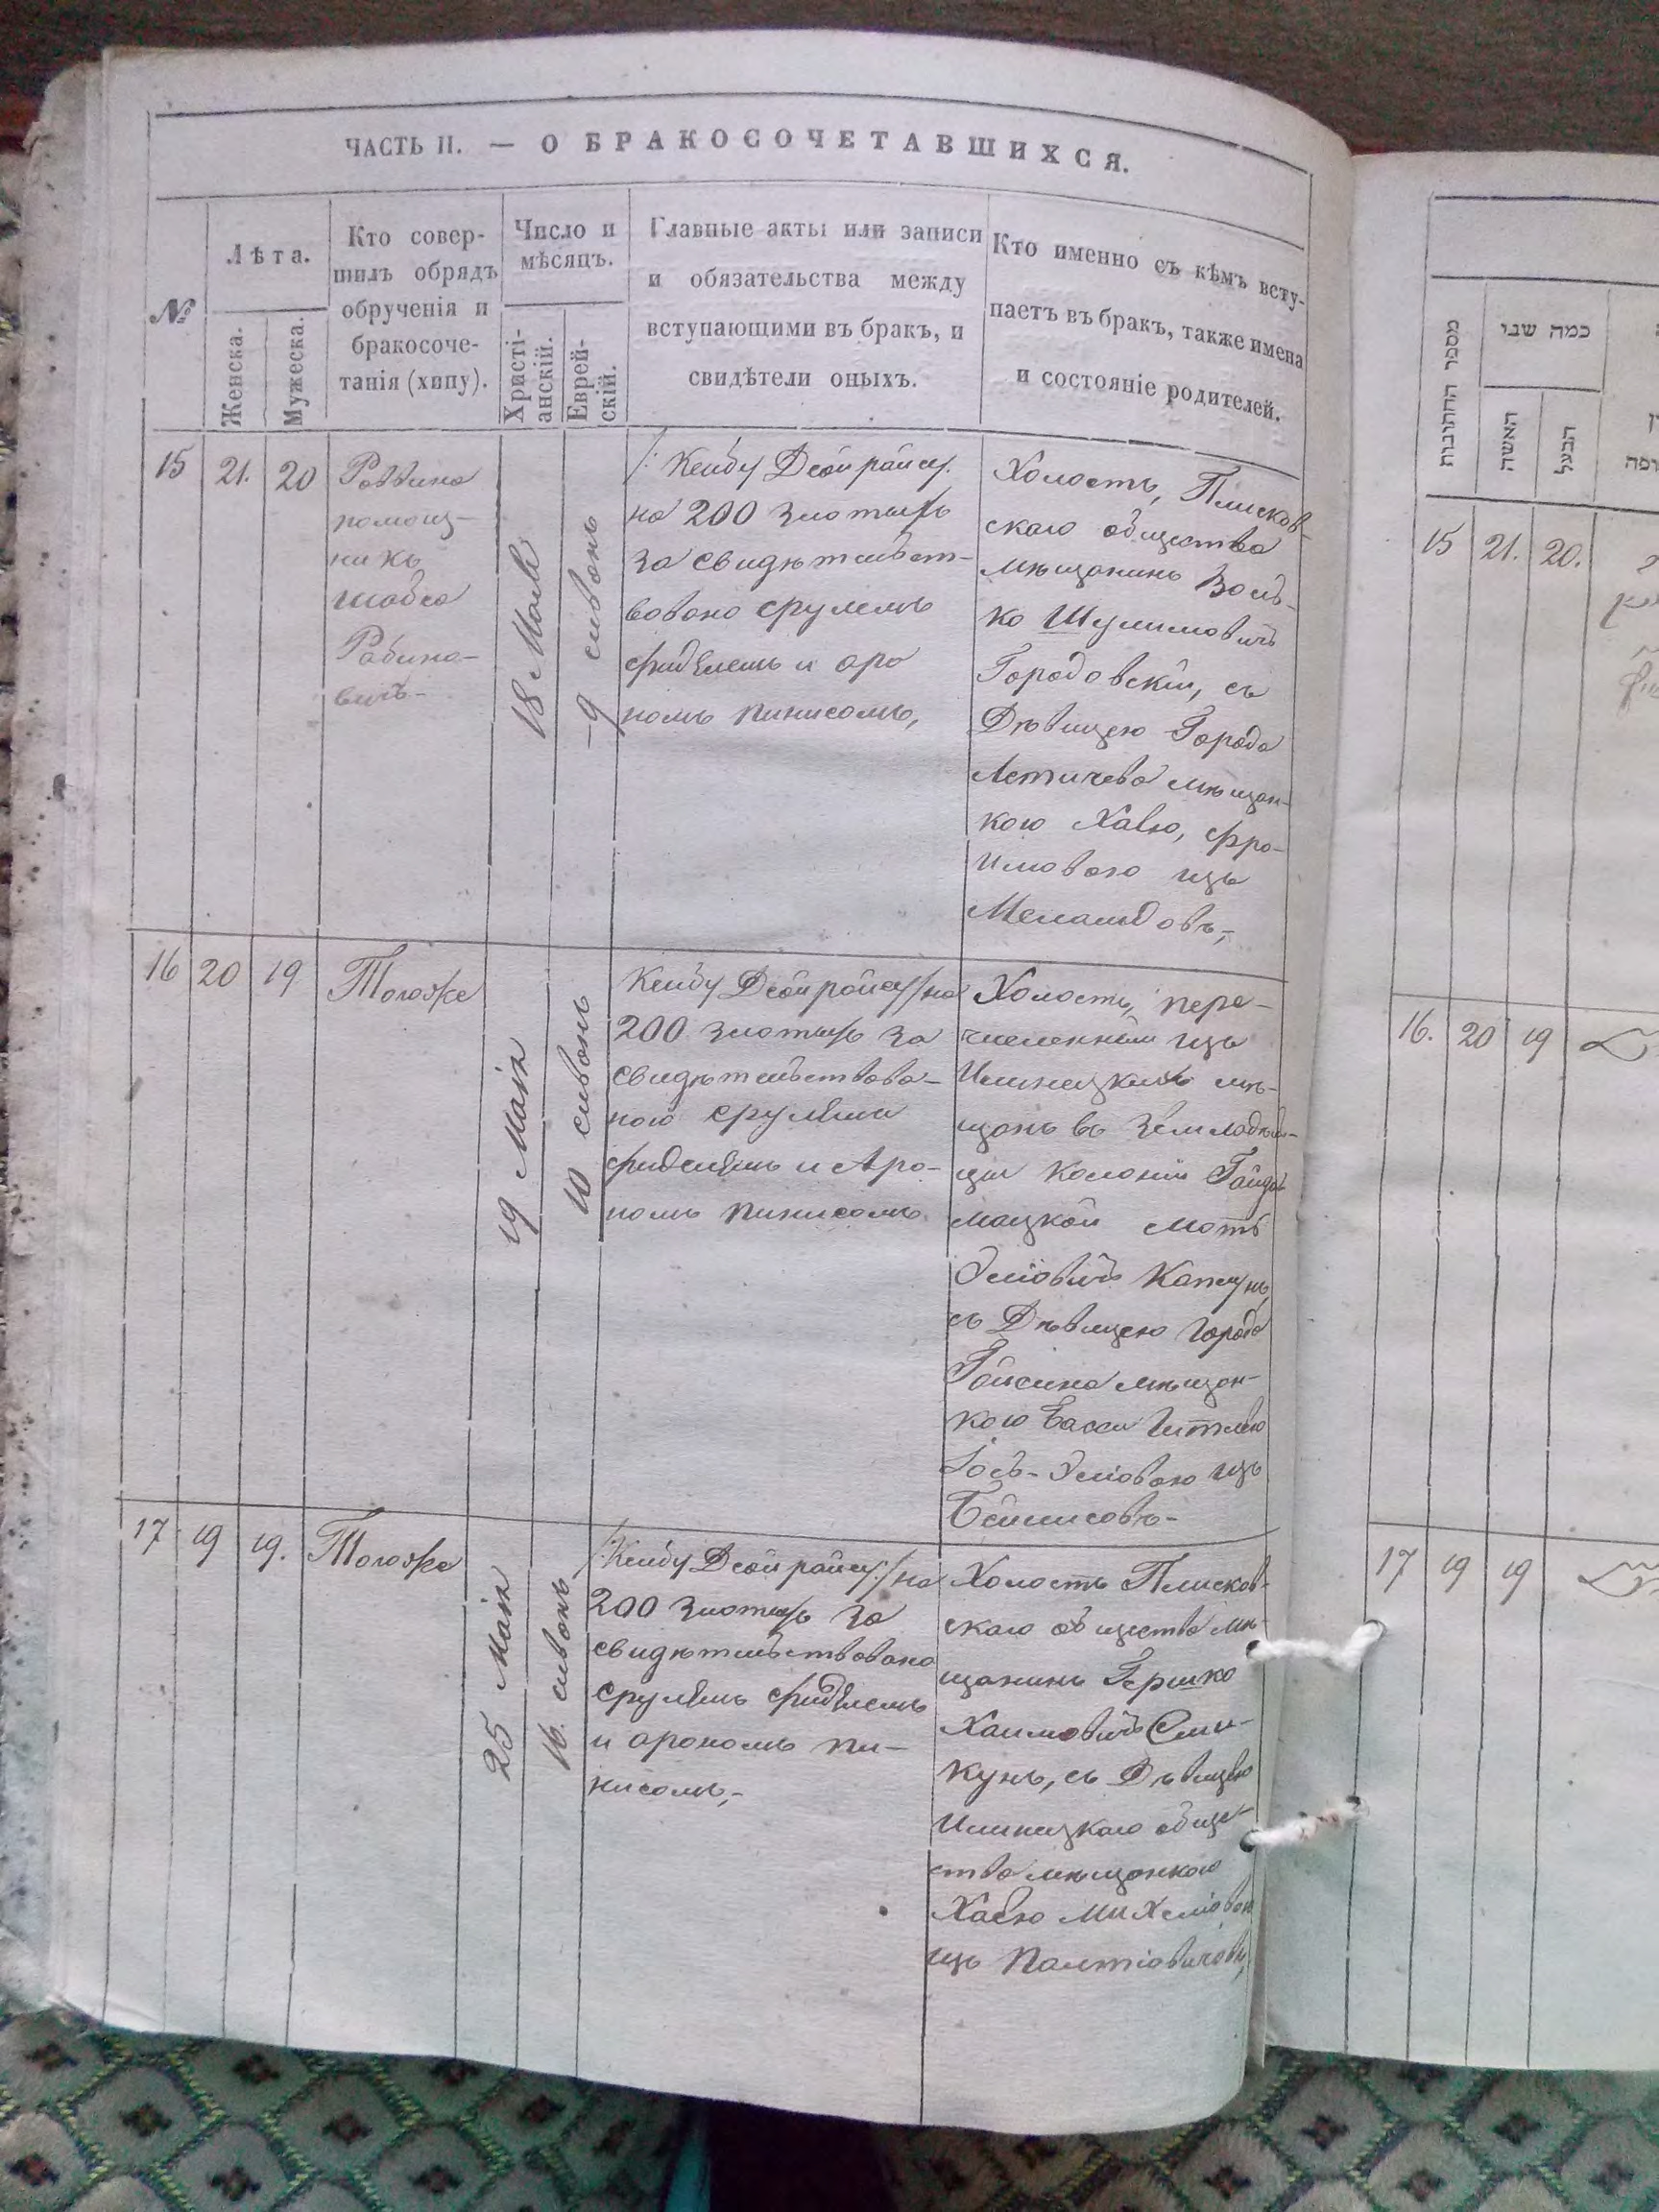 ЧАСТЬ II. — О БРАКОСОЧЕТАВШИХСЯ.
№
Лѣта.
Женска.
Мужеска.
Кто совер-
шилъ обрядъ
обрученія и
бракосоче-
танія (хипу).
Число и
мѣсяцъ.
Христі-
анскій.
Еврей-
скій.
Главные акты или записи
и обязательства между
вступающими въ бракъ, и
свидѣтели оныхъ.
Кто именно съ кѣмъ всту-
паетъ въ бракъ, также имена
и состояніе родителей.
15
21.
20
Раввина
помощ-
никъ
Шабса
Рабино-
вичъ-
18 Маія
9 сивонь
/: Кейбу Дсойрайсу.
на 200 злотыхъ
засвидѣтельст-
вовано Срулемъ
Фиделемъ и Аро
номъ Пинисомъ,
Холостъ, Плисков-
скаго общества
мѣщанинъ Воль-
ко Шулимовичъ
Городовскій, съ
Дѣвицею Города
Летичева мѣщан-
кою Хавю, Фро-
имовою изъ
16
20
19
Тогоже
19 Маія
10 сивонь
Кейбу Дсойрайсу/на
200 злотыхъ за
свидѣтельствова-
ною Срулемъ
Фиделемъ и Аро-
номъ Пинисомъ
Холостъ, пере-
численный изъ
Илинецкихъ мѣ-
щанъ въ Земладѣль-
цы Колоніи
Мотъ
съ Дѣвицею Города
Гайсина мѣщан-
кою Басси Гитлею
изъ
17
19
19.
Тогоже
25 Маія
16 сивонь
/:Кейбу Дсойрайсу:/на
200 злотыхъ за
свидѣтельствовано
Срулемъ Фиделемъ
и Арономъ Пи-
нисомъ,-
Холостъ Плисков-
скаго общества мѣ-
щанинъ Гершко
Хаимовичъ Сли-
кунъ, съ Дѣвицею
Илинецкаго обще-
ства мѣщанкою
Хавю Михеліовою
изъ
מספר החתונות
כמה שני
האשה
הבעל
15
21.
20.
16.
20
19
17
19
19